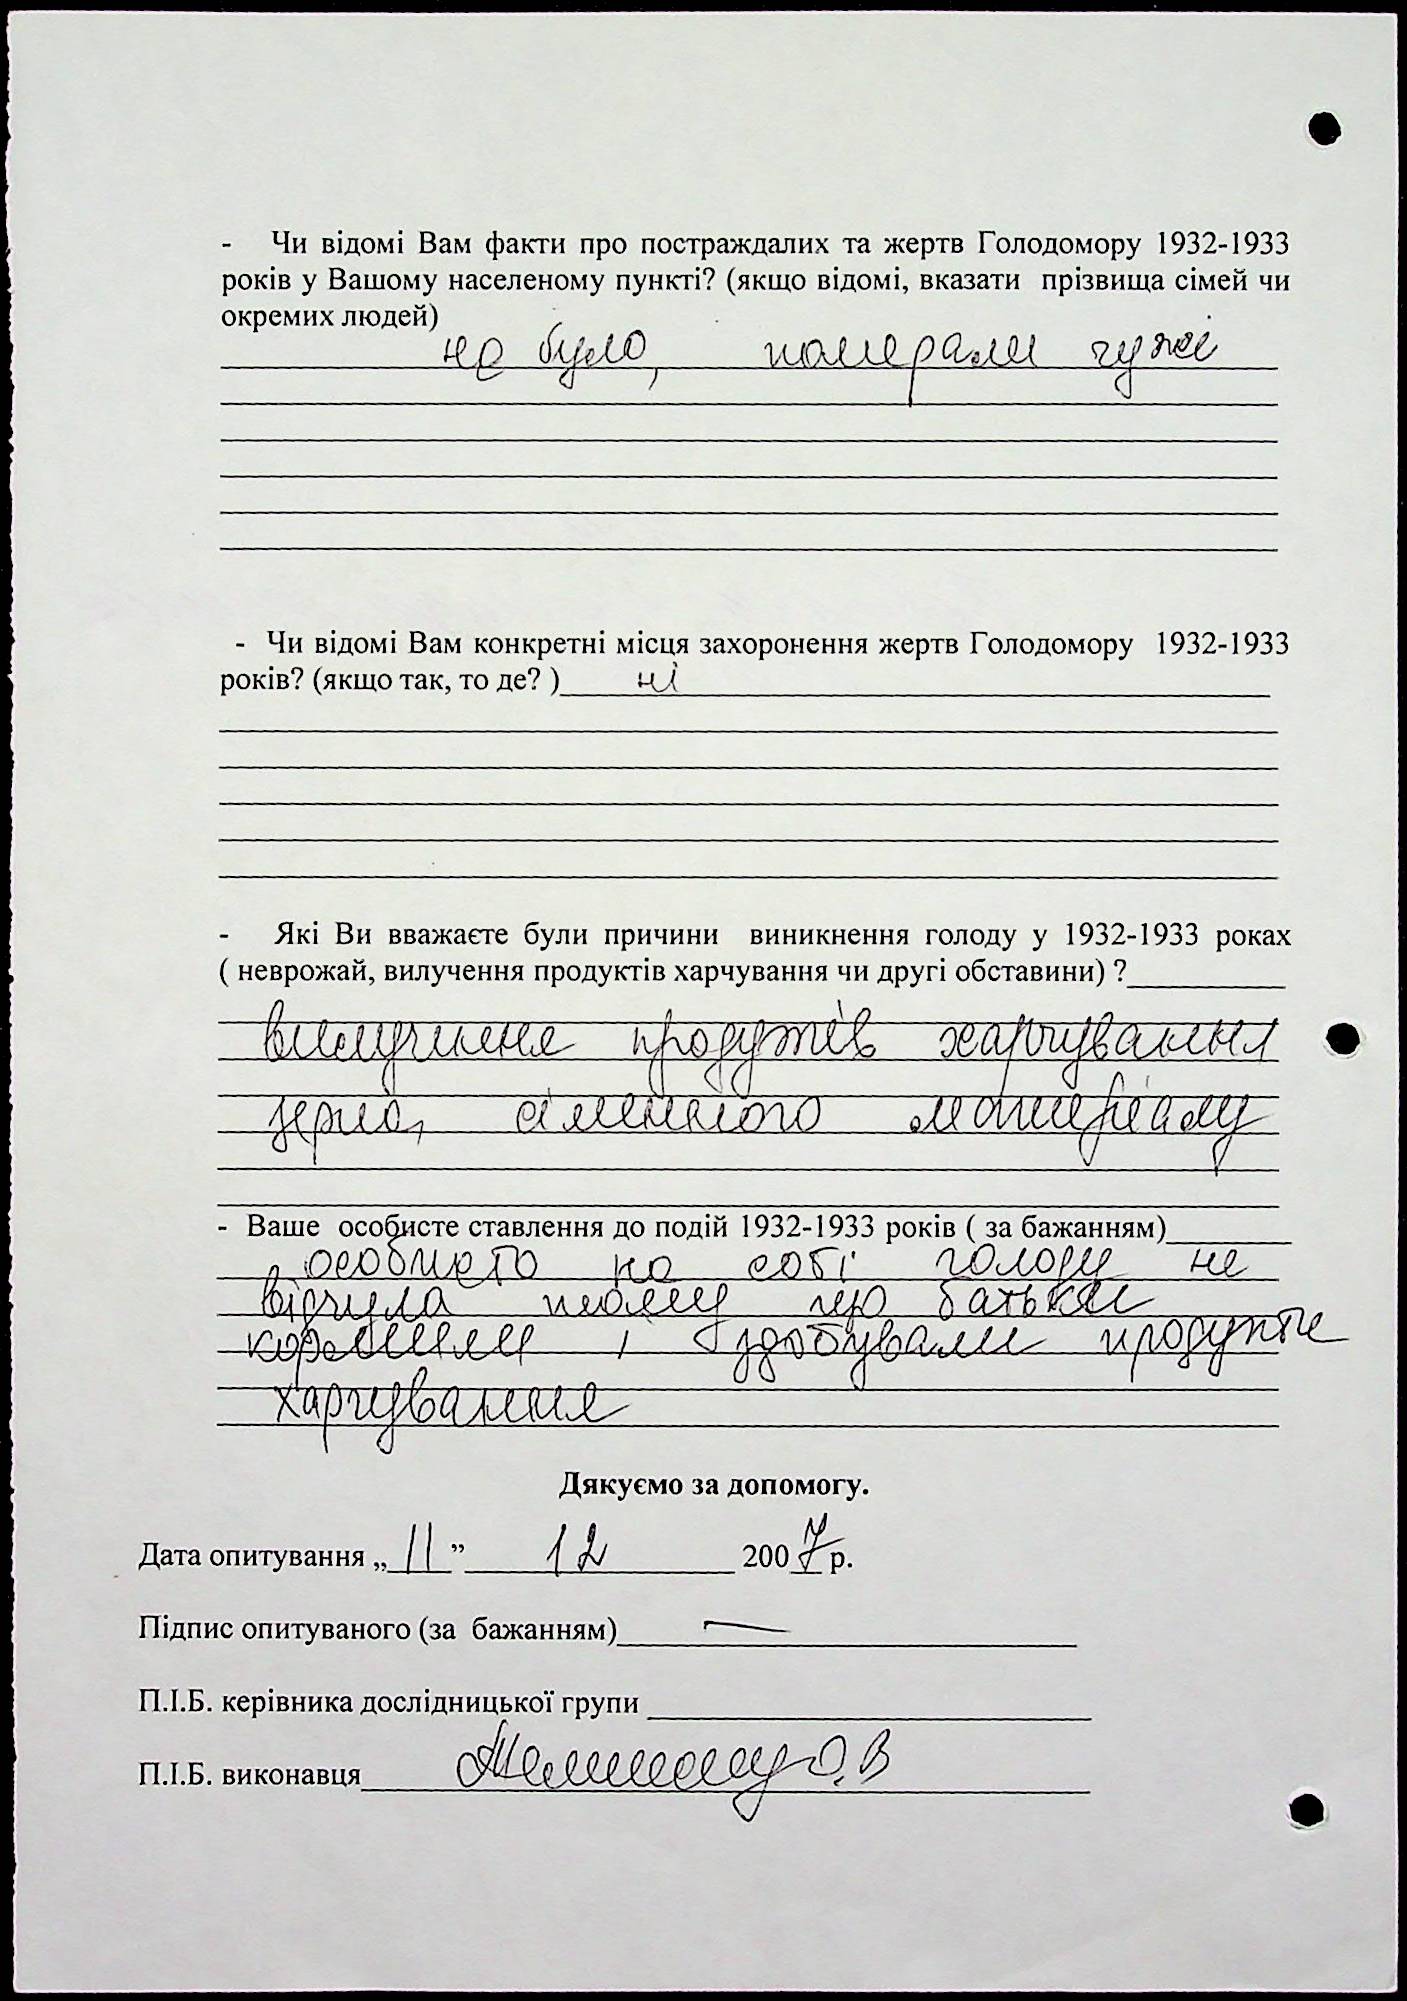 - Чи відомі Вам факти про постраждалих та жертв Голодомору 1932-1933
років у Вашому населеному пункті? (якщо відомі, вказати прізвища сімей чи
окремих людей)
не було, померали чужі
- Чи відомі Вам конкретні місця захоронення жертв Голодомору 1932-1933
років? (якщо так, то де? ) ні
- Які Ви вважаєте були причини виникнення голоду у 1932-1933 роках
( неврожай, вилучення продуктів харчування чи другі обставини) ?
вилучення продуктів харчування
зерна, сіменного матеріалу
- Ваше особисте ставлення до подій 1932-1933 років ( за бажанням)
особисто на собі голоду не
відчула тому що батьки
кормили і здобували продукти
харчування
Дякуємо за допомогу.
Дата опитування „11” 12 2007 р.
Підпис опитуваного (за бажанням) —
П.І.Б. керівника дослідницької групи
П.І.Б. виконавця О.В